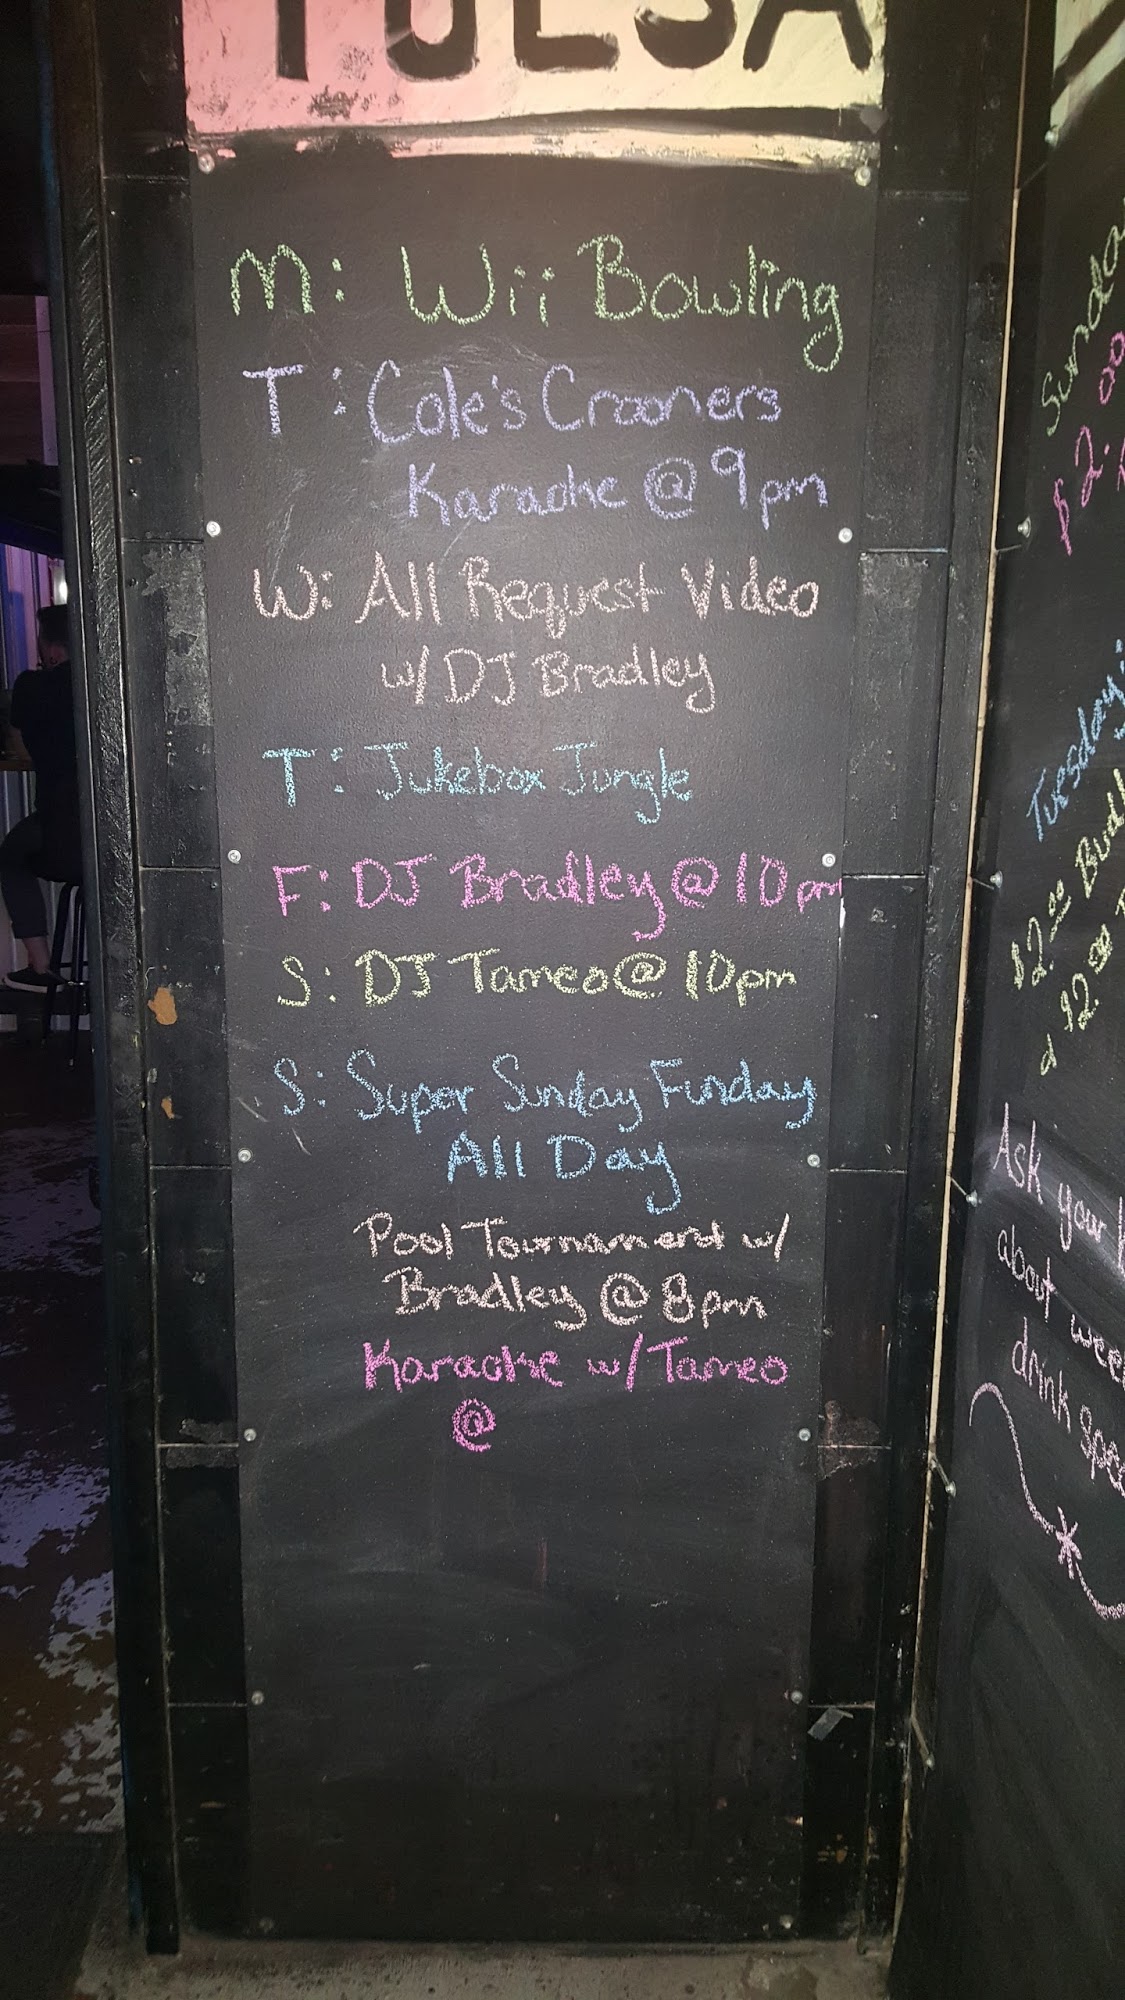 TULSA
M: Wii Bowling
T: Cole's Crooners
Karaoke @ 9pm
W: All Request Video
w/ DJ Bradley
T: Jukebox Jungle
F: DJ Bradley @ 10pm
S: DJ Tameo @ 10pm
S: Super Sunday Funday
All Day
Pool Tournament w/
Bradley @ 8pm
Karaoke w/ Tameo
@
Tuesday:
$2.00
$2.50
Ask your
about
drink